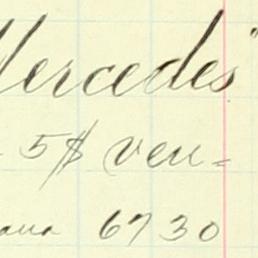 Mercedes"
5$ ven=
ana 6730